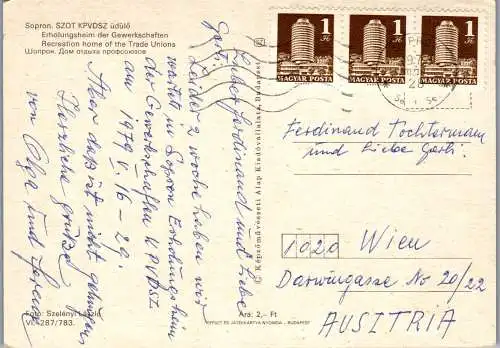 Sopron. SZOT KPVDSZ üdülő
Erholungsheim der Gewerkschaften
Recreation home of the Trade Unions
Шопрон. Дом отдыха профсоюзов
Lieber Ferdinand und Liebe
Gerti.
Leider 2 woche haben wir
wartet in Sopron Erholungsheim
der Gewerkschaften K PVDSZ
am 1979 V. 16-29.
Aber daß ist nicht
Herzliche grüße
von Olga und Ferenc
Foto: Szelényi László
VI.-287/783.
© Képzőművészeti Alap Kiadóvállalata, Budapest
Ára: 2,- Ft
OFFSET ÉS JÁTÉKKÁRTYA NYOMDA - BUDAPEST
1 Ft
MAGYAR POSTA
1 Ft
MAGYAR POSTA
1 Ft
MAGYAR POSTA
Ferdinand Tochterman
und Liebe Gerti.
1020 Wien
Darwingasse No 20/22
AUSITRIA